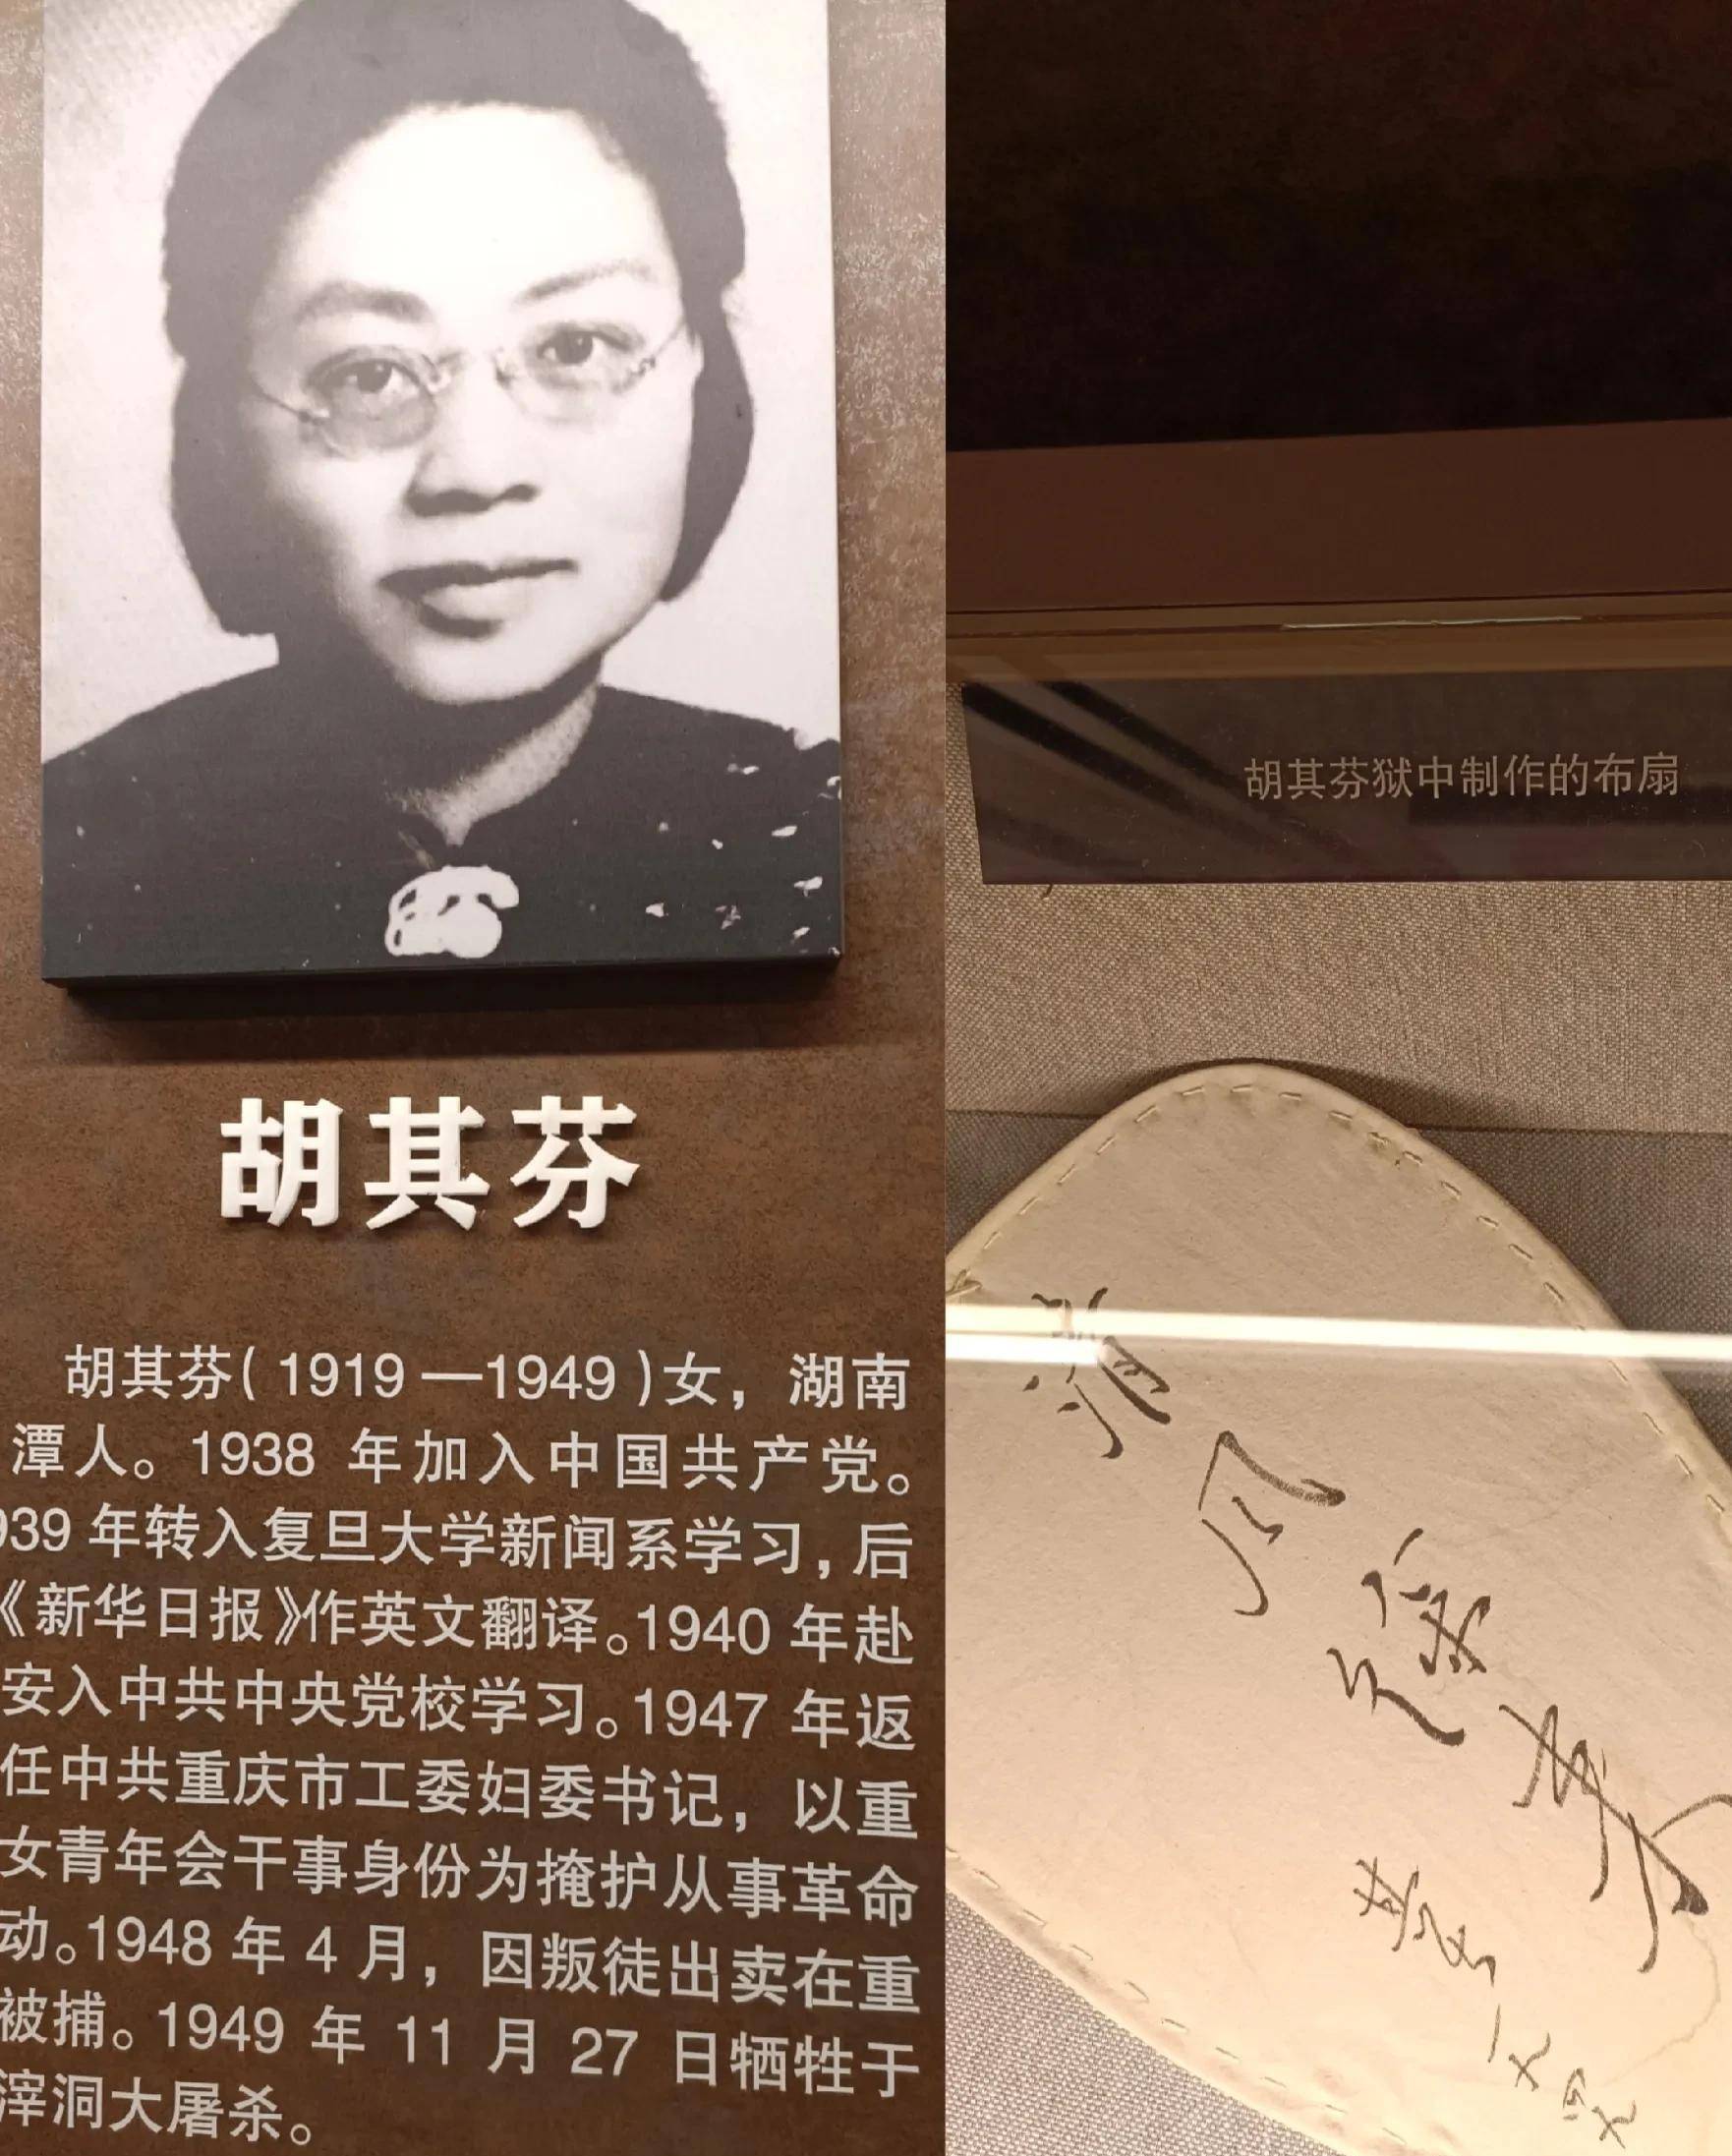 胡其芬
胡其芬(1919—1949)女，湖南
潭人。1938年加入中国共产党。
939年转入复旦大学新闻系学习，后
《新华日报》作英文翻译。1940年赴
安入中共中央党校学习。1947年返
任中共重庆市工委妇委书记，以重
女青年会干事身份为掩护从事革命
动。1948年4月，因叛徒出卖在重
被捕。1949年11月27日牺牲于
滓洞大屠杀。
胡其芬狱中制作的布扇
清风徐来
一九四九